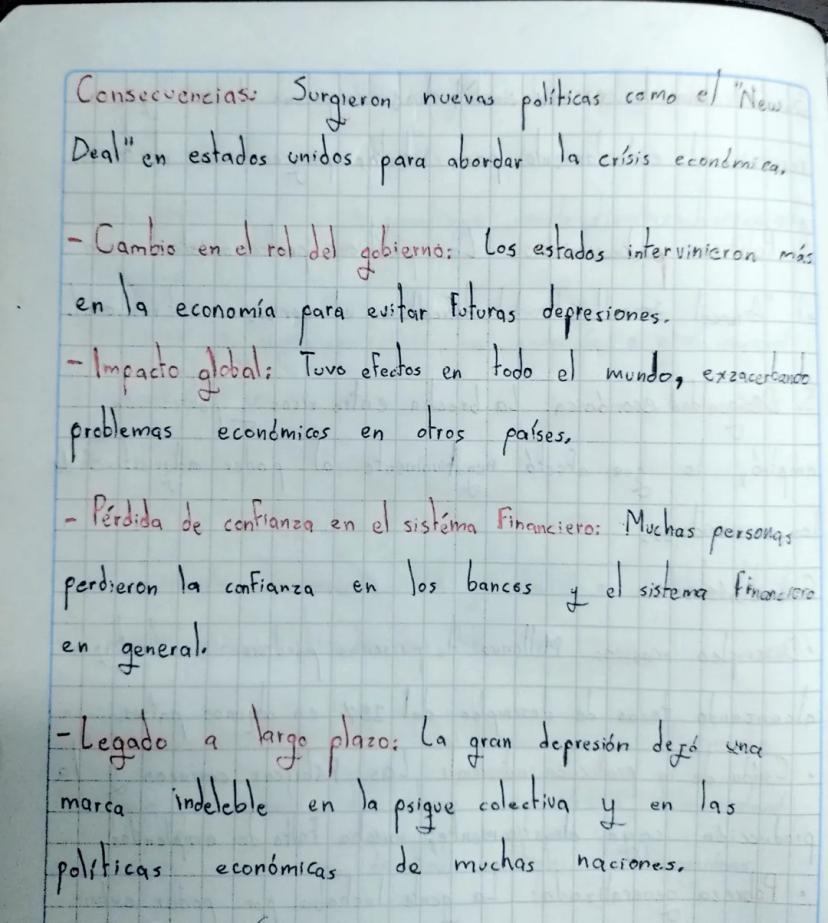 Consecuencias: Surgieron nuevas políticas como el "New
Deal" en estados unidos para abordar la crísis económica.
- Cambio en el rol del gobierno: Los estados intervinieron más
en la economía para evitar futuras depresiones.
- Impacto global: Tuvo efectos en todo el mundo, exzacerbando
problemas económicos en otros países.
- Pérdida de confianza en el sistéma Financiero: Muchas personas
perdieron la confianza en los bancos y el sistema financiero
en general.
- Legado a largo plazo: La gran depresión dejó una
marca indeleble en la psique colectiva y en las
políticas económicas de muchas naciones.